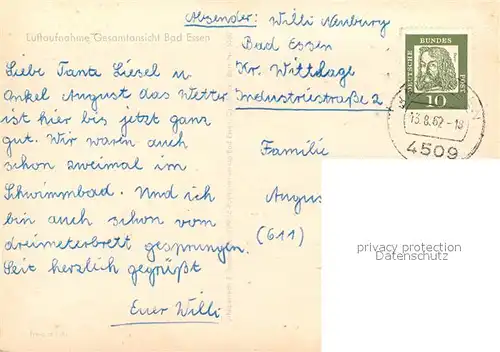 Absender: Willi Neuburg
Luftaufnahme, Gesamtansicht Bad Essen
Bad Essen
Kr. Wittlage
Industriestraße 2
DEUTSCHE BUNDES POST
10
13.8.62-18
4509
Liebe Tante Liesel u.
Onkel August das Wetter
ist hier bis jetzt ganz
gut. Wir waren auch
schon zweimal im
Schwimmbad. Und ich
bin auch schon vom
dreimeterbrett gesprungen.
Seit herzlich gegrüßt
Euer Willi
Familie
Augus
(611)
privacy protection
Datenschutz